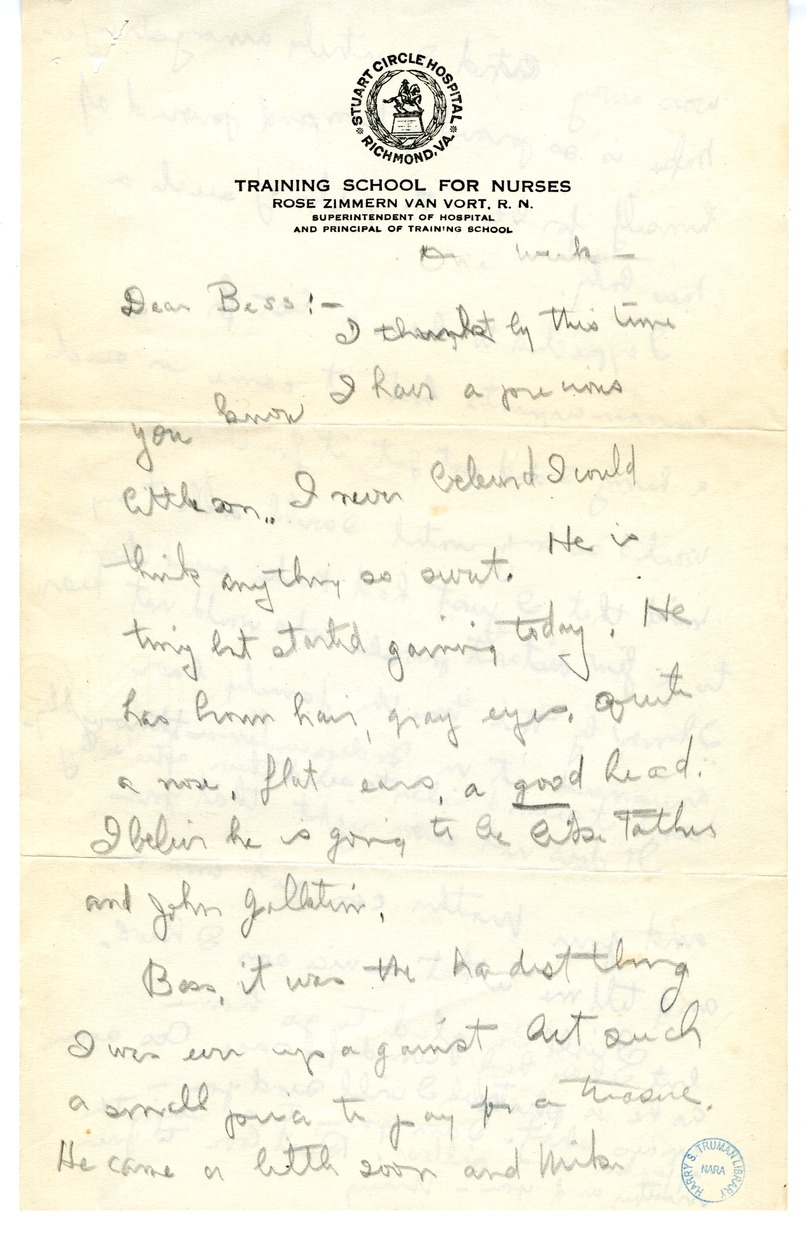 STUART CIRCLE HOSPITAL
RICHMOND, VA.
TRAINING SCHOOL FOR NURSES
ROSE ZIMMERN VAN VORT, R. N.
SUPERINTENDENT OF HOSPITAL
AND PRINCIPAL OF TRAINING SCHOOL
One week —
Dear Bess!—
I think by this time
you know I have a precious
little son. I never believed I would
think anything so sweet. He is
tiny but started gaining today. He
has brown hair, gray eyes, quite
a nose, flat ears, a good head.
I believe he is going to be like Father
and John Gallatin.
Bess, it was the hardest thing
I was ever up against but such
a small price to pay for a treasure.
He came a little soon and Mike
HARRY S. TRUMAN LIBRARY
NARA